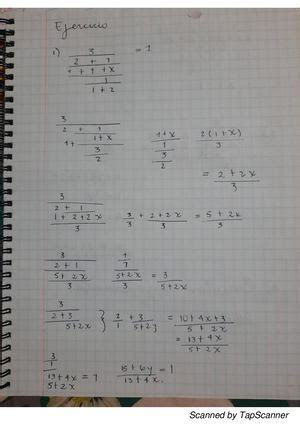 Ejercicio
1) 3 = 1
2 + 1
1 + 1 + x
1
1 + 2
3
2 + 1
1 + 1+x
3
2
1+x
1
3
2
2(1+x)
3
= 2 + 2x
3
3
2 + 1
1 + 2 + 2x
3
3 + 2 + 2x = 5 + 2x
3 3 3
3
2 + 1
5 + 2x
3
1
1
5+2x
3
= 3
5+2x
3
2 + 3
5+2x
} 2 + 3 = 10 + 4x + 3
1 5+2y 5 + 2x
= 13 + 4x
5 + 2x
3
1
13 + 4x = 1
5 + 2x
15 + 6y = 1
13 + 4x.
Scanned by TapScanner